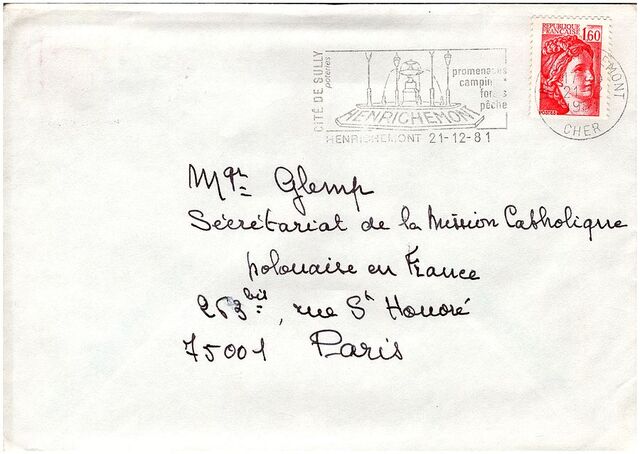 CITÉ DE SULLY
poteries
promenades
camping
forêts
pêche
HENRICHEMONT
HENRICHEMONT 21-12-81
REPUBLIQUE FRANÇAISE 1,60
POSTES
CHER
Mgr Glemp
Sécrétariat de la Mission Catholique
polonaise en France
263 bis, rue St Honoré
75001 Paris